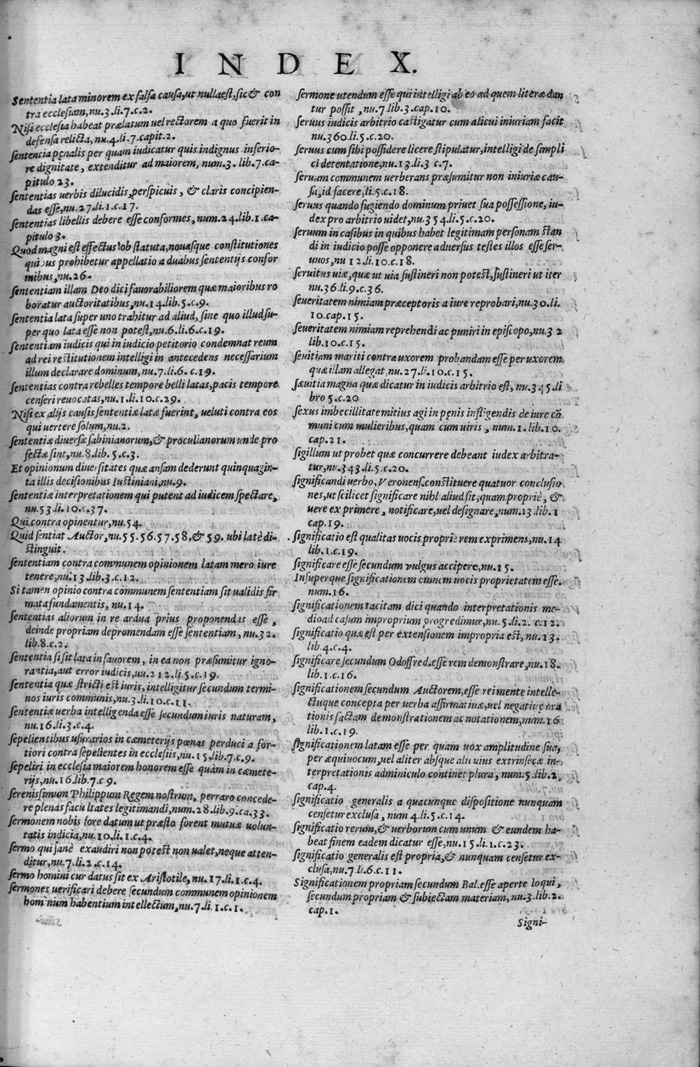 INDEX.
Sententia lata minorem ex falsa causa, ut nulla est, sic & con
tra ecclesiam, nu.3.li.7.c.2.
Nisi ecclesia habeat prælatum uel rectorem a quo fuerit in
defensa relicta, nu.4.li.7.capit.2.
sententia penalis per quam iudicatur quis indignus inferio-
re dignitate, extenditur ad maiorem, num.3. lib.7.ca-
pitulo 23.
sententias uerbis dilucidis, perspicuis, & claris concipien-
das esse, nu.27.li.1.c.17.
sententias libellis debere esse conformes, num.24.lib.1.ca-
pitulo 3.
Quod magni est effectus ob statuta, nouasque constitutiones
quibus prohibetur appellatio a duabus sententijs confor
mibus, nu.26.
sententiam illam Deo dici fauorabiliorem quæ maioribus ro
boratur auctoritatibus, nu.14.lib.5.c.9.
sententia lata super uno trahitur ad aliud, sine quo illud su-
per quo lata esse non potest, nu.6.li.6.c.19.
sententiam iudicis qui in iudicio petitorio condemnat reum
ad rei restitutionem intelligi in antecedens necessarium
illum declarare dominum, nu.7.li.6. c.19.
sententias contra rebelles tempore belli latas, pacis tempore
censeri reuocatas, nu.1.li.10.c.29.
Nisi ex alijs causis sententiæ latæ fuerint, ueluti contra eos
qui uertere solum, nu.2.
sententiæ diuersæ sabinianorum, & proculianorum unde pro
fectæ sint, nu.8.lib.5.c.3.
Et opinionum diuersitates quæ ansam dederunt quinquagin-
ta illis decisionibus Iustiniani, nu.9.
sententiæ interpretationem qui putent ad iudicem spectare,
nu.53.li.10.c.37.
Qui contra opinentur, nu.54.
Quid sentiat Auctor, nu.55.56.57.58.& 59. ubi latè di-
stinguit.
sententiam contra communem opinionem latam mero iure
tenere, nu.13.lib.3.c.12.
Si tamen opinio contra communem sententiam sit ualidis fir
mata fundamentis, nu.14.
sententias aliorum in re ardua prius proponendas esse,
deinde propriam depromendam esse sententiam, nu.32.
lib.8.c.2.
sententia si sit lata in fauorem, in ea non præsumitur igno-
rantia, aut error iudicis, nu.212.li.5.c.19.
sententia quæ stricti est iuris, intelligitur secundum termi-
nos iuris communis, nu.3.li.10.c.11.
sententiæ uerba intelligenda esse secundum iuris naturam,
nu.16.li.3.c.4.
sepelientibus usurarios in cæmeterijs pœnas perduci a for-
tiori contra sepelientes in ecclesiis, nu.15.lib.7.c.9.
sepeliri in ecclesia maiorem honorem esse quàm in cæmete-
rijs, nu.16.lib.7.c.9.
serenissimum Philippum Regem nostrum, perraro concede-
re plenas facultates legitimandi, num.28.lib.9.ca.33.
sermonem nobis fore datum ut præsto forent mutuæ uolun-
tatis indicia, nu.10.li.1.c.4.
sermo qui sanè exaudiri non potest non ualet, neque atten-
ditur, nu.7.li.2.c.14.
sermo homini cur datus sit ex Aristotile, nu.17.li.1.c.4.
sermones uerificari debere secundum communem opinionem
hominum habentium intellectum, nu.7.li.1.c.1.
sermone utendum esse qui intelligi ab eo ad quem literæ dan
tur possit, nu.7.lib.3.cap.10.
seruus iudicis arbitrio castigatur cum alicui iniuriam facit
nu.360.li.5.c.20.
seruus cum sibi possidere licere stipulatur, intelligi de simpli
ci detentatione, nu.13.li.3 c.7.
seruum communem uerberans præsumitur non iniuriæ cau-
sa, id facere, li.5.c.18.
seruus quando fugiendo dominum priuet sua possessione, iu-
dex pro arbitrio uidet, nu.354.li.5.c.20.
seruum in casibus in quibus habet legitimam personam stan
di in iudicio posse opponere aduersus testes illos esse ser-
uos, nu 12.li.10.c.18.
seruitus uiæ, quæ ut uia sustineri non potest, sustineri ut iter
nu.36.li.9.c.36.
seueritatem nimiam præceptoris a iure reprobari, nu.30.li.
10.cap.15.
seueritatem nimiam reprehendi ac puniri in episcopo, nu.32
lib.10.c.15.
seuitiam mariti contra uxorem probandam esse per uxorem
quæ illam allegat, nu.27.li.10.c.15.
sæuitia magna quæ dicatur in iudicis arbitrio est, nu.345.li
bro 5.c.20
sexus imbecillitate mitius agi in penis infligendis de iure cō
muni cum mulieribus, quam cum uiris, num.1.lib.10.
cap.21.
sigillum ut probet quæ concurrere debeant iudex arbitra-
tur, nu.343.li.5.c.20.
significandi uerbo, Veronens. constituere quatuor conclusio
nes, ut scilicet significare nihl aliud sit, quam propriè, &
uere exprimere, notificare, uel designare, num.13.lib.1
cap.19.
significatio est qualitas uocis propriè rem exprimens, nu.14
lib.1.c.19.
significare esse secundum uulgus accipere, nu.15.
Insuperque significationem omnem uocis proprietatem esse.
num.16.
significationem tacitam dici quando interpretationis me-
dio ad casum improprium progredimur, nu.5.li.2. c.12.
significatio quæ est per extensionem impropria est, nu.13.
lib.4.c.4.
significare secundum Odoffred. esse rem demonstrare, nu.18.
lib.1.c.16.
significationem secundum Auctorem, esse rei mente intelle-
ctuque concepta per uerba affirmatiua, uel negatiue ora
tionis factam demonstrationem ac notationem, num.16
lib.1.c.19.
significationem latam esse per quam uox amplitudine sua,
per æquiuocum, uel aliter absque alicuius extrinsecæ in-
terpretationis adminiculo continet plura, num.5.lib.2,
cap.4.
significatio generalis a quacunque dispositione nunquam
censetur exclusa, num 4.li.5.c.14.
significatio rerum, & uerborum cum unum & eundem ha-
beat finem eadem dicatur esse, nu.15.li.1.c.23.
significatio generalis est propria, & nunquam censetur ex-
clusa, nu.7.li.6.c.11.
Significationem propriam secundum Bal. esse aperte loqui,
secundum propriam & subiectam materiam, nu.3.lib.2.
cap.1.
Signi-